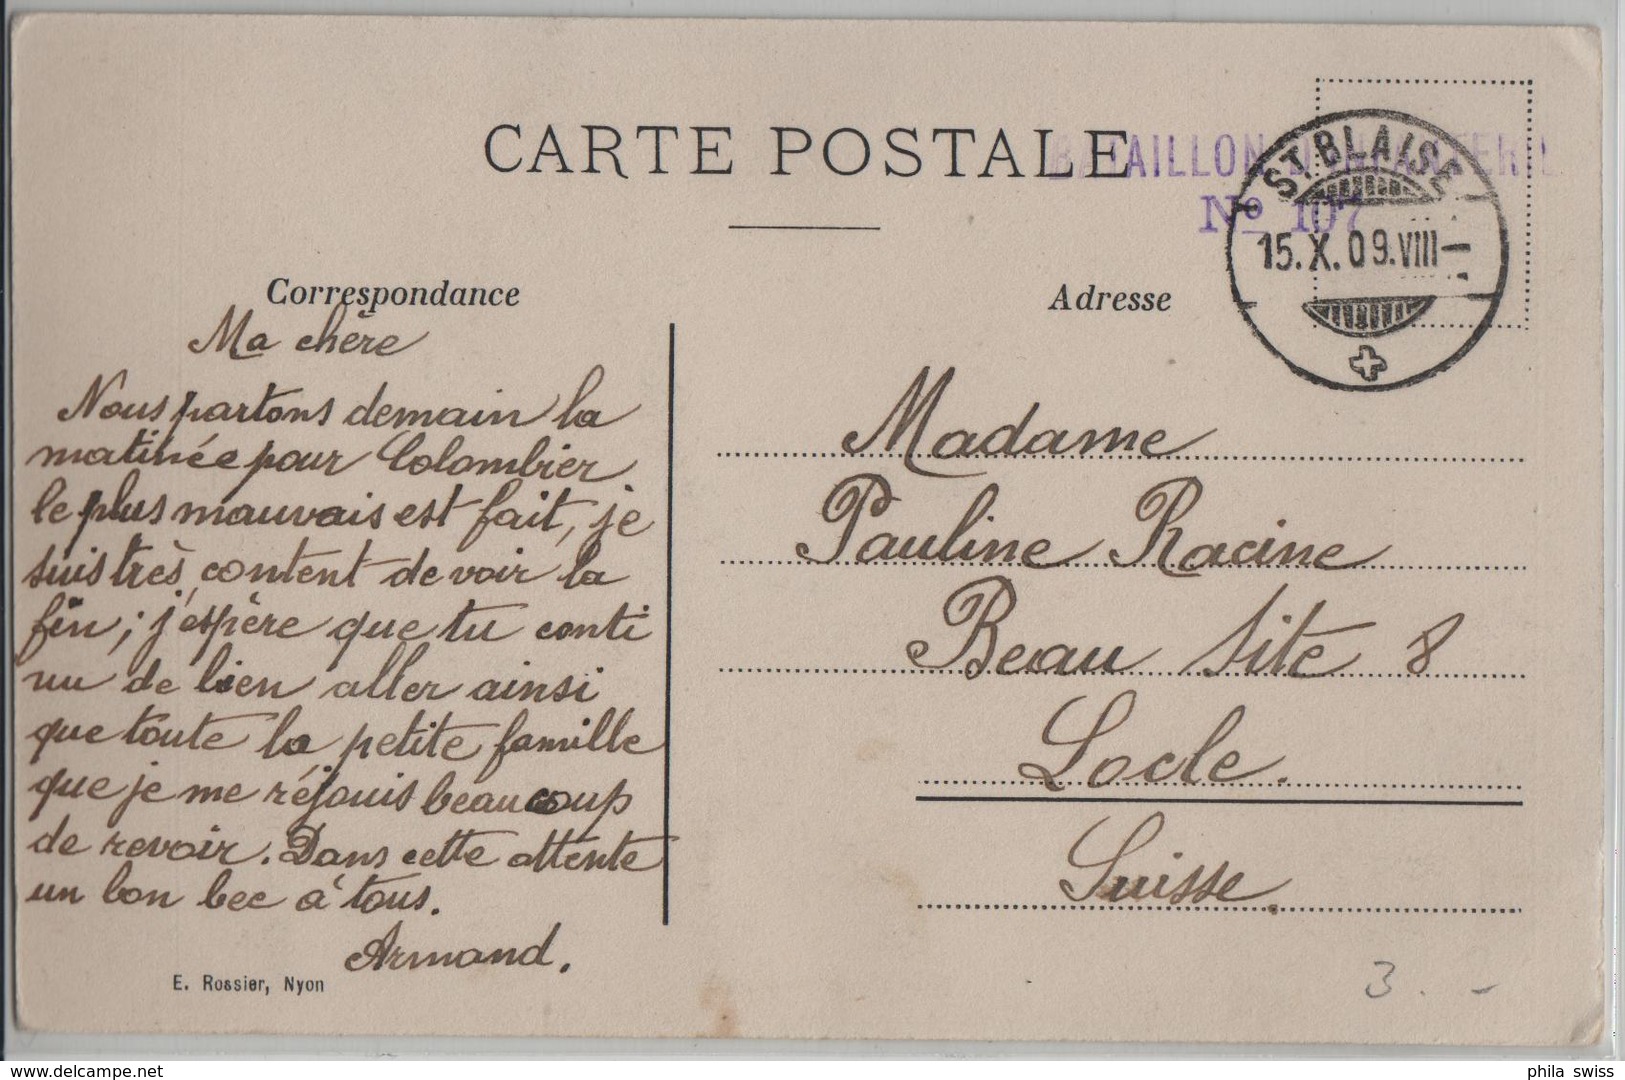 CARTE POSTALE
BATAILLON D'INFANTERIE
No 107
ST. BLAISE
15.X.09.VIII-
Correspondance
Adresse
Ma chère
Nous partons demain la
matinée pour Colombier
le plus mauvais est fait, je
suis très content de voir la
fin; j'espère que tu conti
nu de bien aller ainsi
que toute la petite famille
que je me réjouis beaucoup
de revoir. Dans cette attente
un bon bec à tous.
Armand.
E. Rossier, Nyon
Madame
Pauline Racine
Beau Site 8
Locle.
Suisse.
3.-
phila swiss